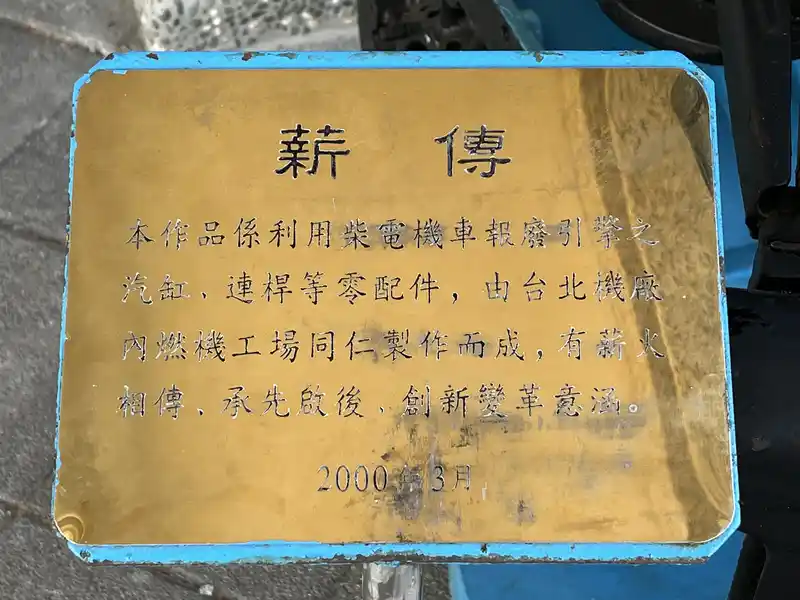 薪傳
本作品係利用柴電機車報廢引擎之
汽缸、連桿等零配件，由台北機廠
內燃機工場同仁製作而成，有薪火
相傳、承先啟後、創新變革意涵。
2000年3月